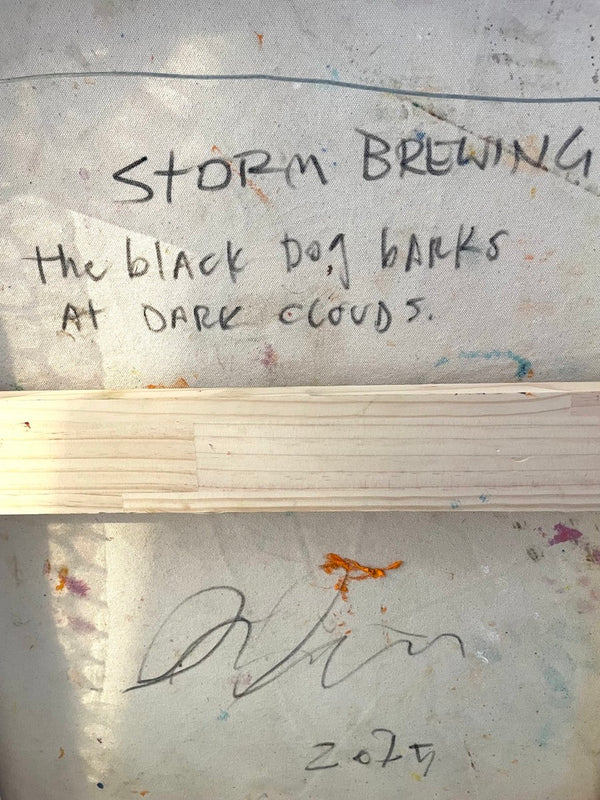 STORM BREWING
the black Dog bARKS
At DARK CLOUDS.
2025